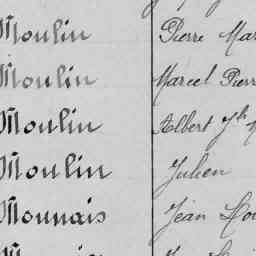 Moulin Pierre Mar
Moulin Marcel Pierr
Moulin Albert Jh
Moulin Julien
Mounais Jean Lou